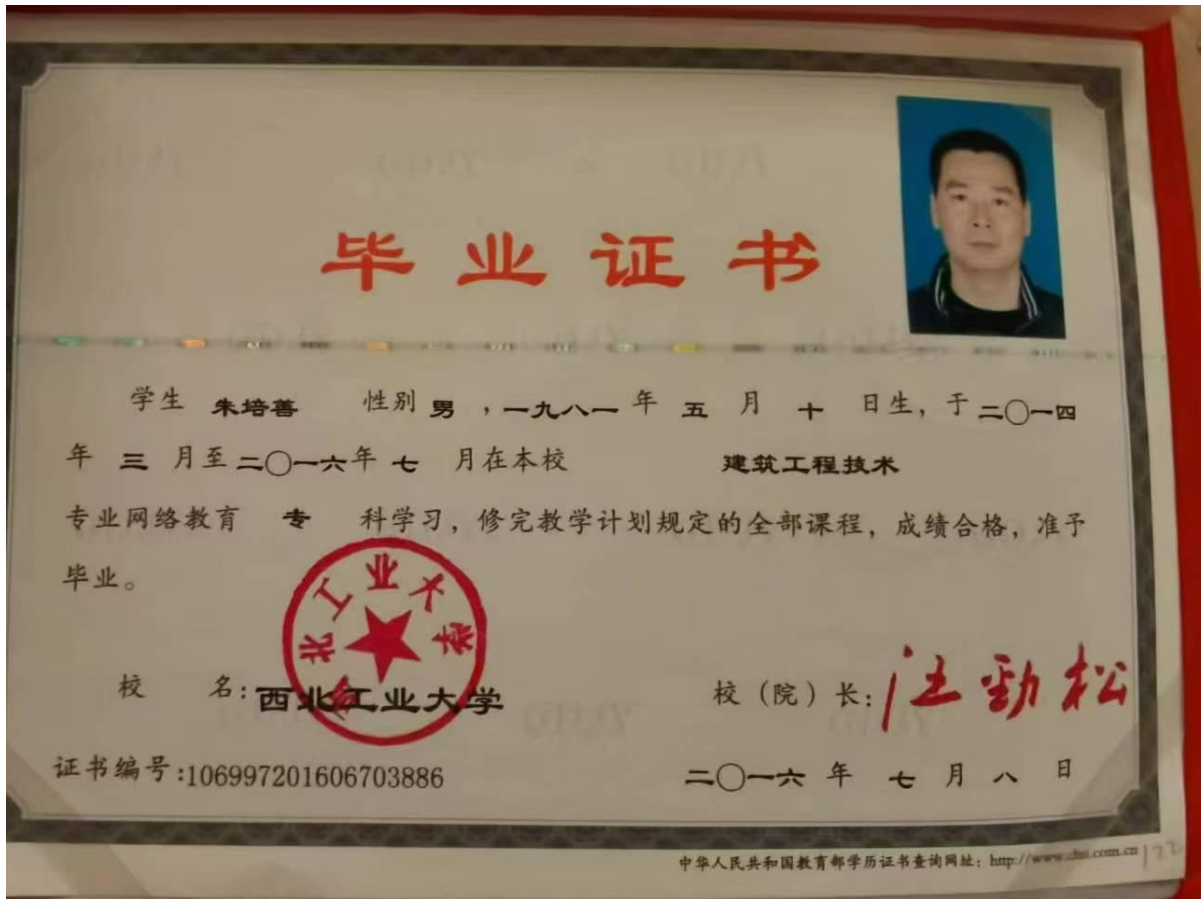 毕业证书
学生 朱培善 性别 男 ，一九八一 年 五 月 十 日生，于 二〇一四
年 三 月至 二〇一六 年 七 月在本校 建筑工程技术
专业网络教育 专 科学习，修完教学计划规定的全部课程，成绩合格，准予
毕业。
西北工业大学
校 名：西北工业大学 校（院）长：汪劲松
证书编号:106997201606703886 二〇一六 年 七 月 八 日
中华人民共和国教育部学历证书查询网址：http://www.chsi.com.cn